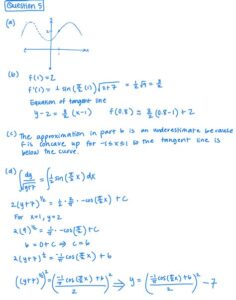 Question 5
(a)
(b)
f(1) = 2
f'(1) = 1/2 sin(π/2 (1)) √2+7 = 1/2 √9 = 3/2
Equation of tangent line
y - 2 = 3/2 (x-1) f(0.8) ≈ 3/2 (0.8-1) + 2
(c) The approximation in part b is an underestimate because
f is concave up for -1≤x≤1 so the tangent line is
below the curve.
(d) ∫ dy/√y+7 = ∫ 1/2 sin(π/2 x) dx
2(y+7)^1/2 = 1/2 · 2/π · -cos(π/2 x) + C
For x=1, y=2
2(9)^1/2 = · -cos(π/2) + C
6 = 0 + C → C = 6
2(y+7)^1/2 = cos(π/2 x) + 6
((y+7)^1/2)^2 = (-1/π cos(π/2 x) + 6 / 2)^2 ⇒ y = (-1/π cos(π/2 x) + 6 / 2)^2 - 7